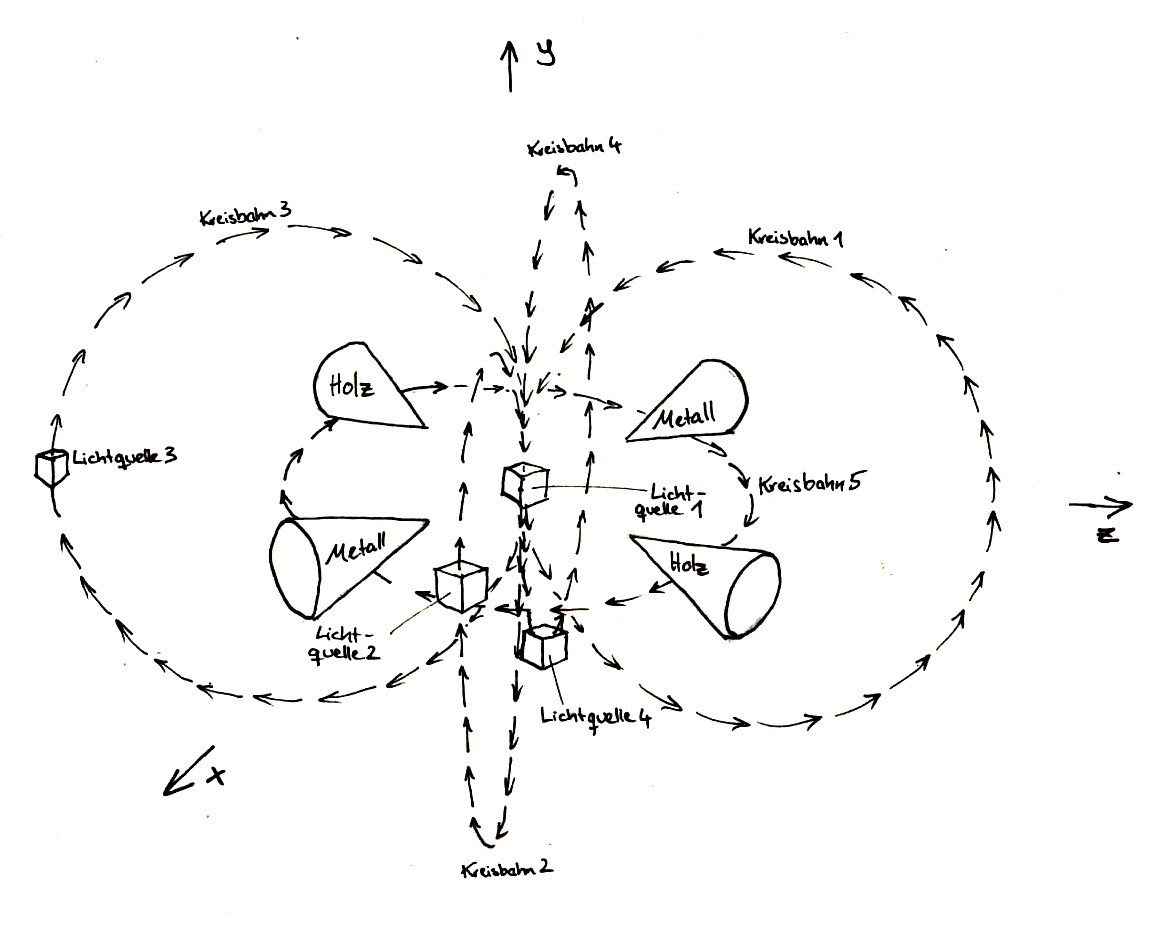 y
Kreisbahn 4
Kreisbahn 3
Kreisbahn 1
Holz
Metall
Lichtquelle 3
Kreisbahn 5
Licht-
quelle 1
z
Metall
Holz
Licht-
quelle 2
Lichtquelle 4
x
Kreisbahn 2